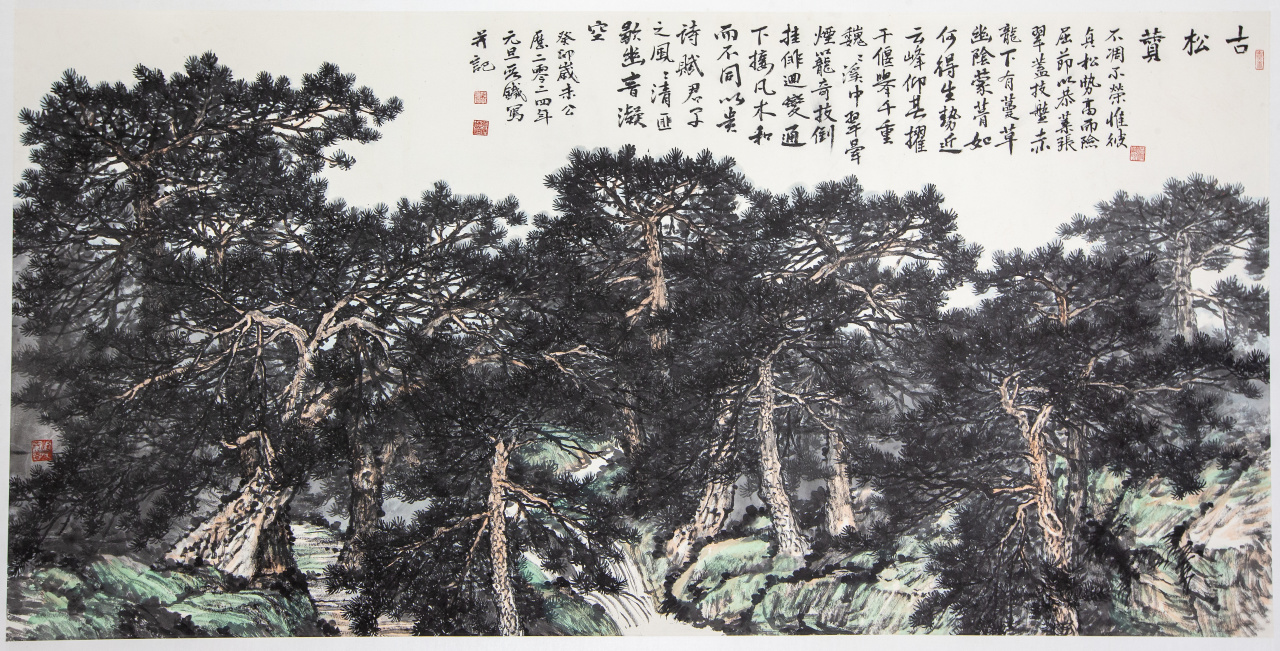 古松贊
不凋不榮惟彼
貞松勢高而險
屈節以恭葉張
翠蓋枝盤赤
龍下有蔓草
幽陰蒙茸如
何得生勢近
云峰仰其擢
干偃舉千重
巍々深中翠暈
煙籠奇枝倒
挂俳迴變通
下接凡木和
而不同以貴
詩賦君子
之風々清匪
歇幽音凝
空
癸卯歲末公
歷二零二四年
元旦寫
并記